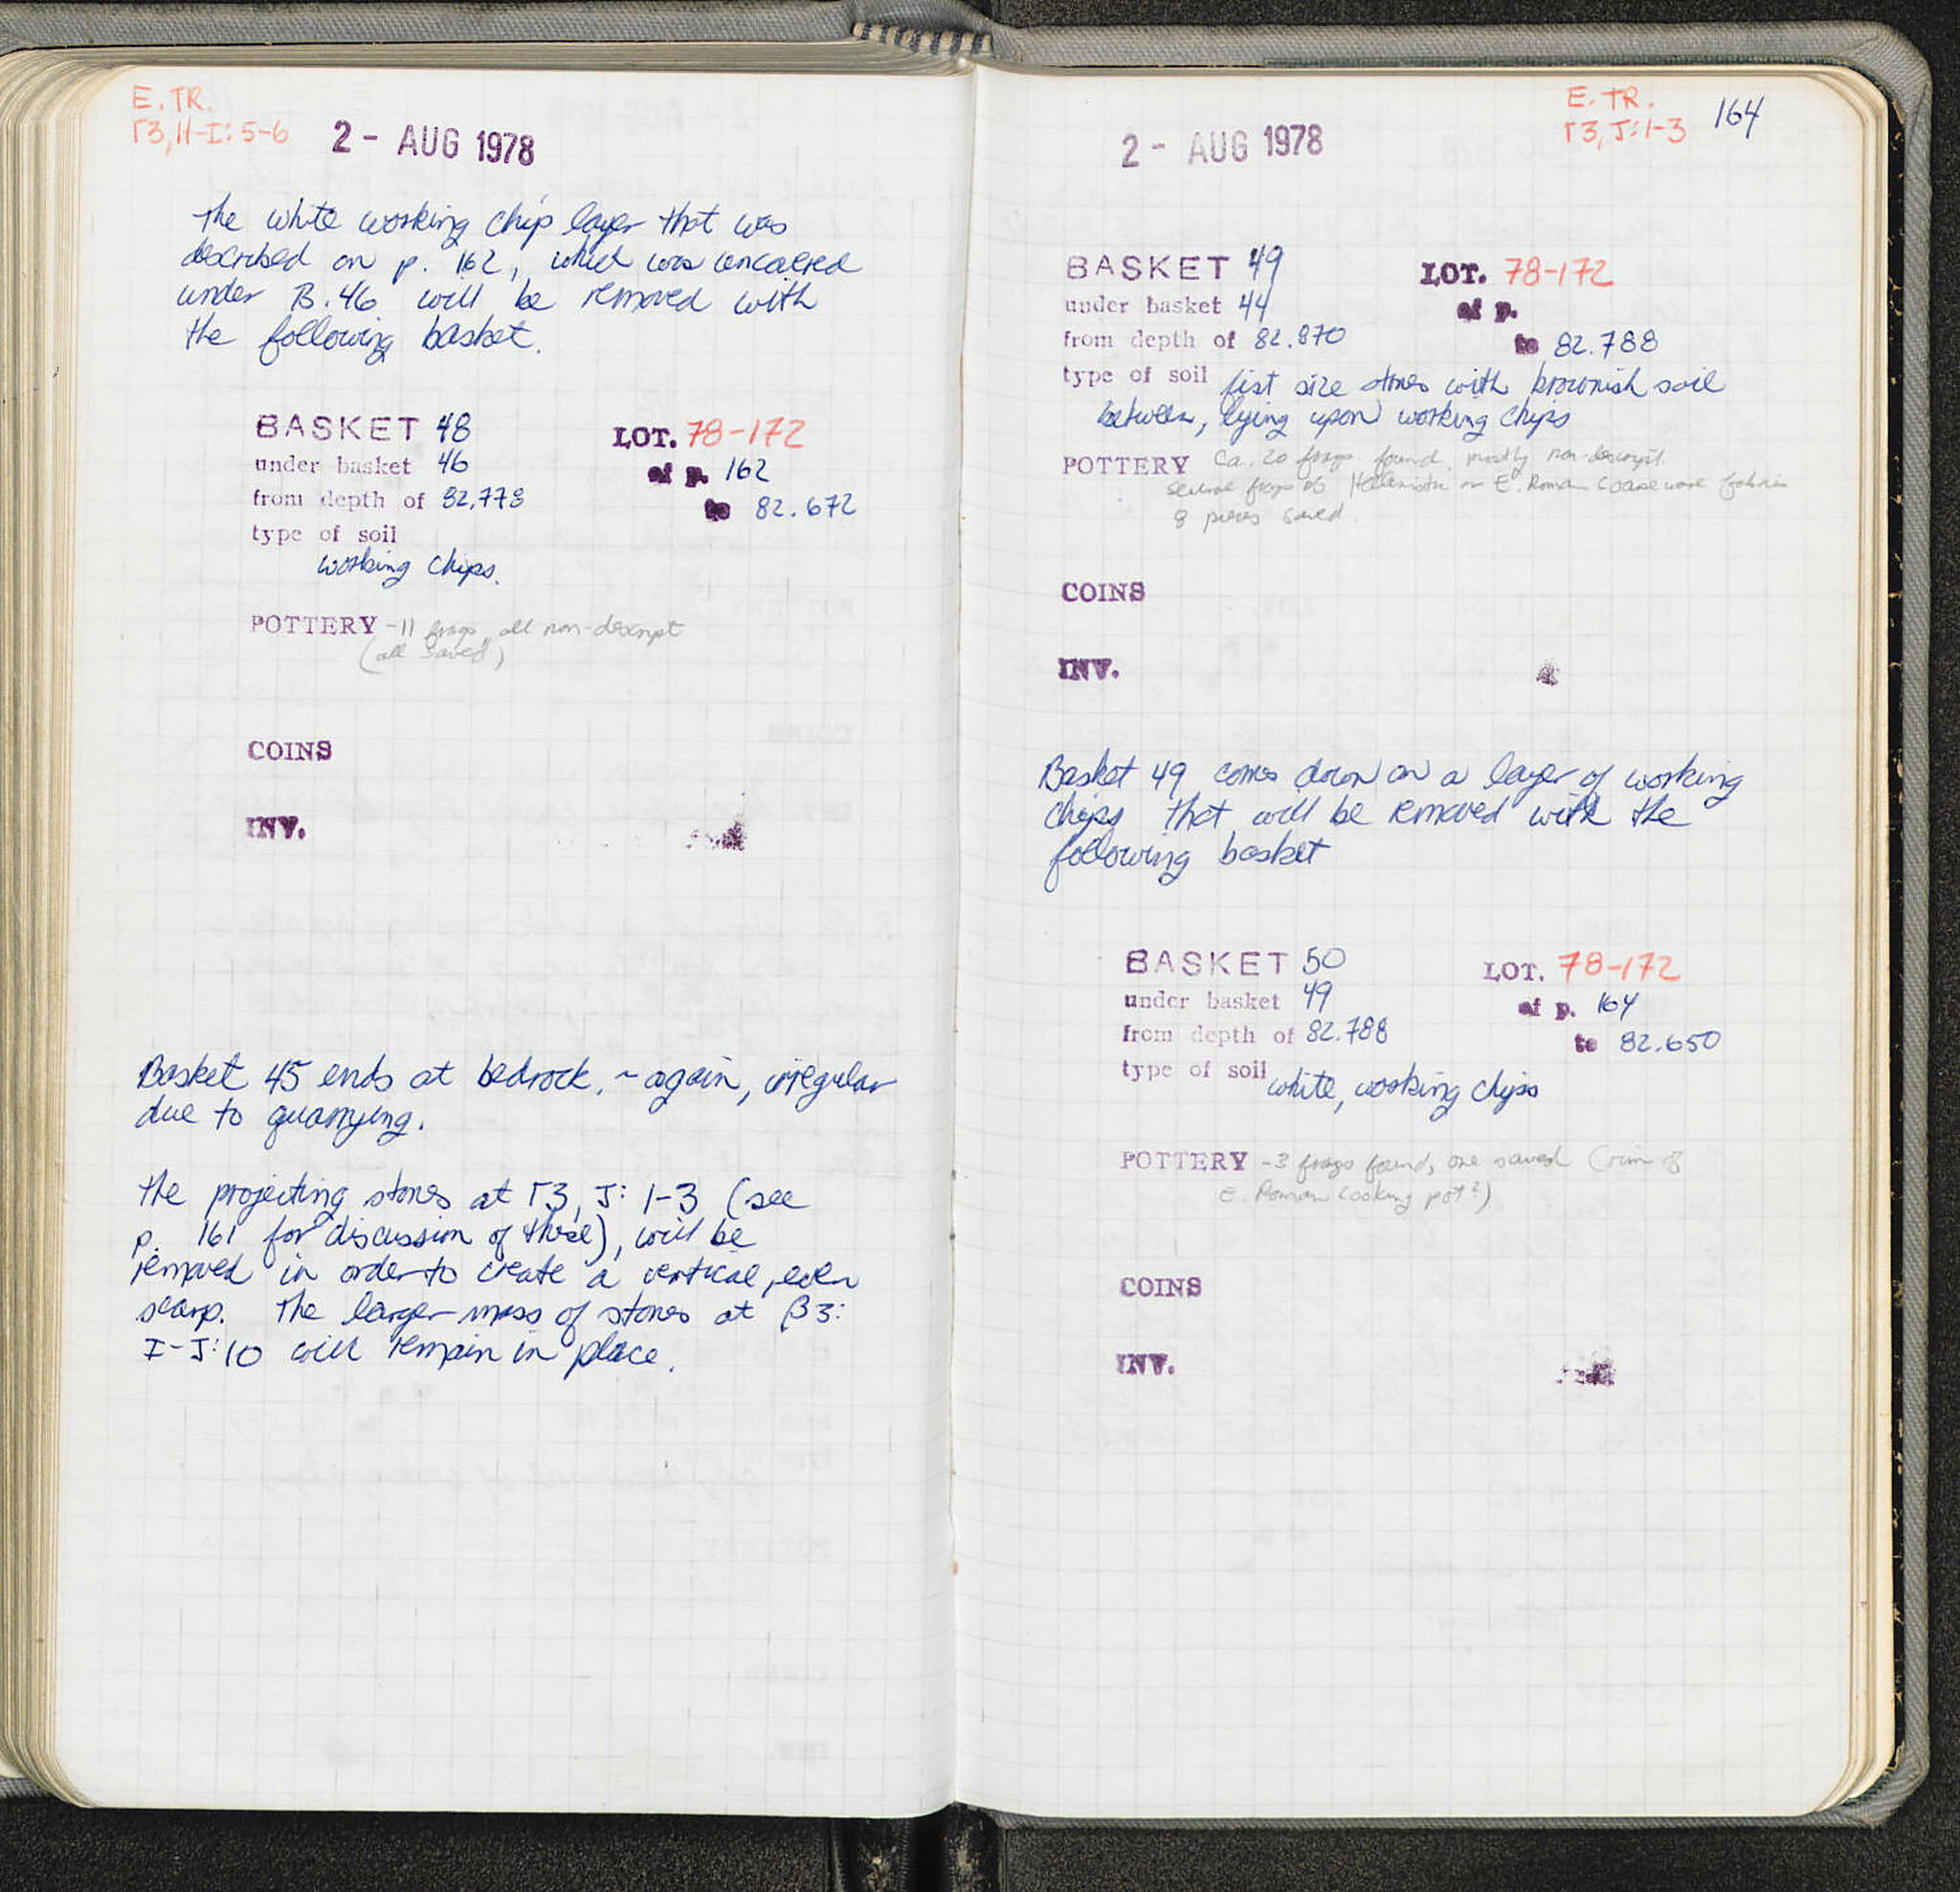 E. TR.
Γ3, H-I: 5-6
2 - AUG 1978
The white working chip layer that was
described on p. 162, which was uncovered
under B. 46 will be removed with
the following basket.
BASKET 48 LOT. 78-172
under basket 46 of p. 162
from depth of 82.778 to 82.672
type of soil
working chips.
POTTERY -11 frags, all non-descript
(all saved)
COINS
INV.
Basket 45 ends at bedrock. ~ again, irregular
due to quarrying.
The projecting stones at Γ3, J: 1-3 (see
p. 161 for discussion of these), will be
removed in order to create a vertical, even
scarp. The larger mass of stones at β3:
I-J: 10 will remain in place.
E. TR.
Γ3, J: 1-3
164
2 - AUG 1978
BASKET 49 LOT. 78-172
under basket 44 of p.
from depth of 82.870 to 82.788
type of soil fist size stones with brownish soil
between, lying upon working chips
POTTERY Ca. 20 frags. found, mostly non-descript.
several frags of Hellenistic or E. Roman coarseware fabrics
8 pieces saved.
COINS
INV.
Basket 49 comes down on a layer of working
chips that will be removed with the
following basket
BASKET 50 LOT. 78-172
under basket 49 of p. 164
from depth of 82.788 to 82.650
type of soil white, working chips
POTTERY -3 frags found, one saved (rim of
E. Roman cooking pot?)
COINS
INV.